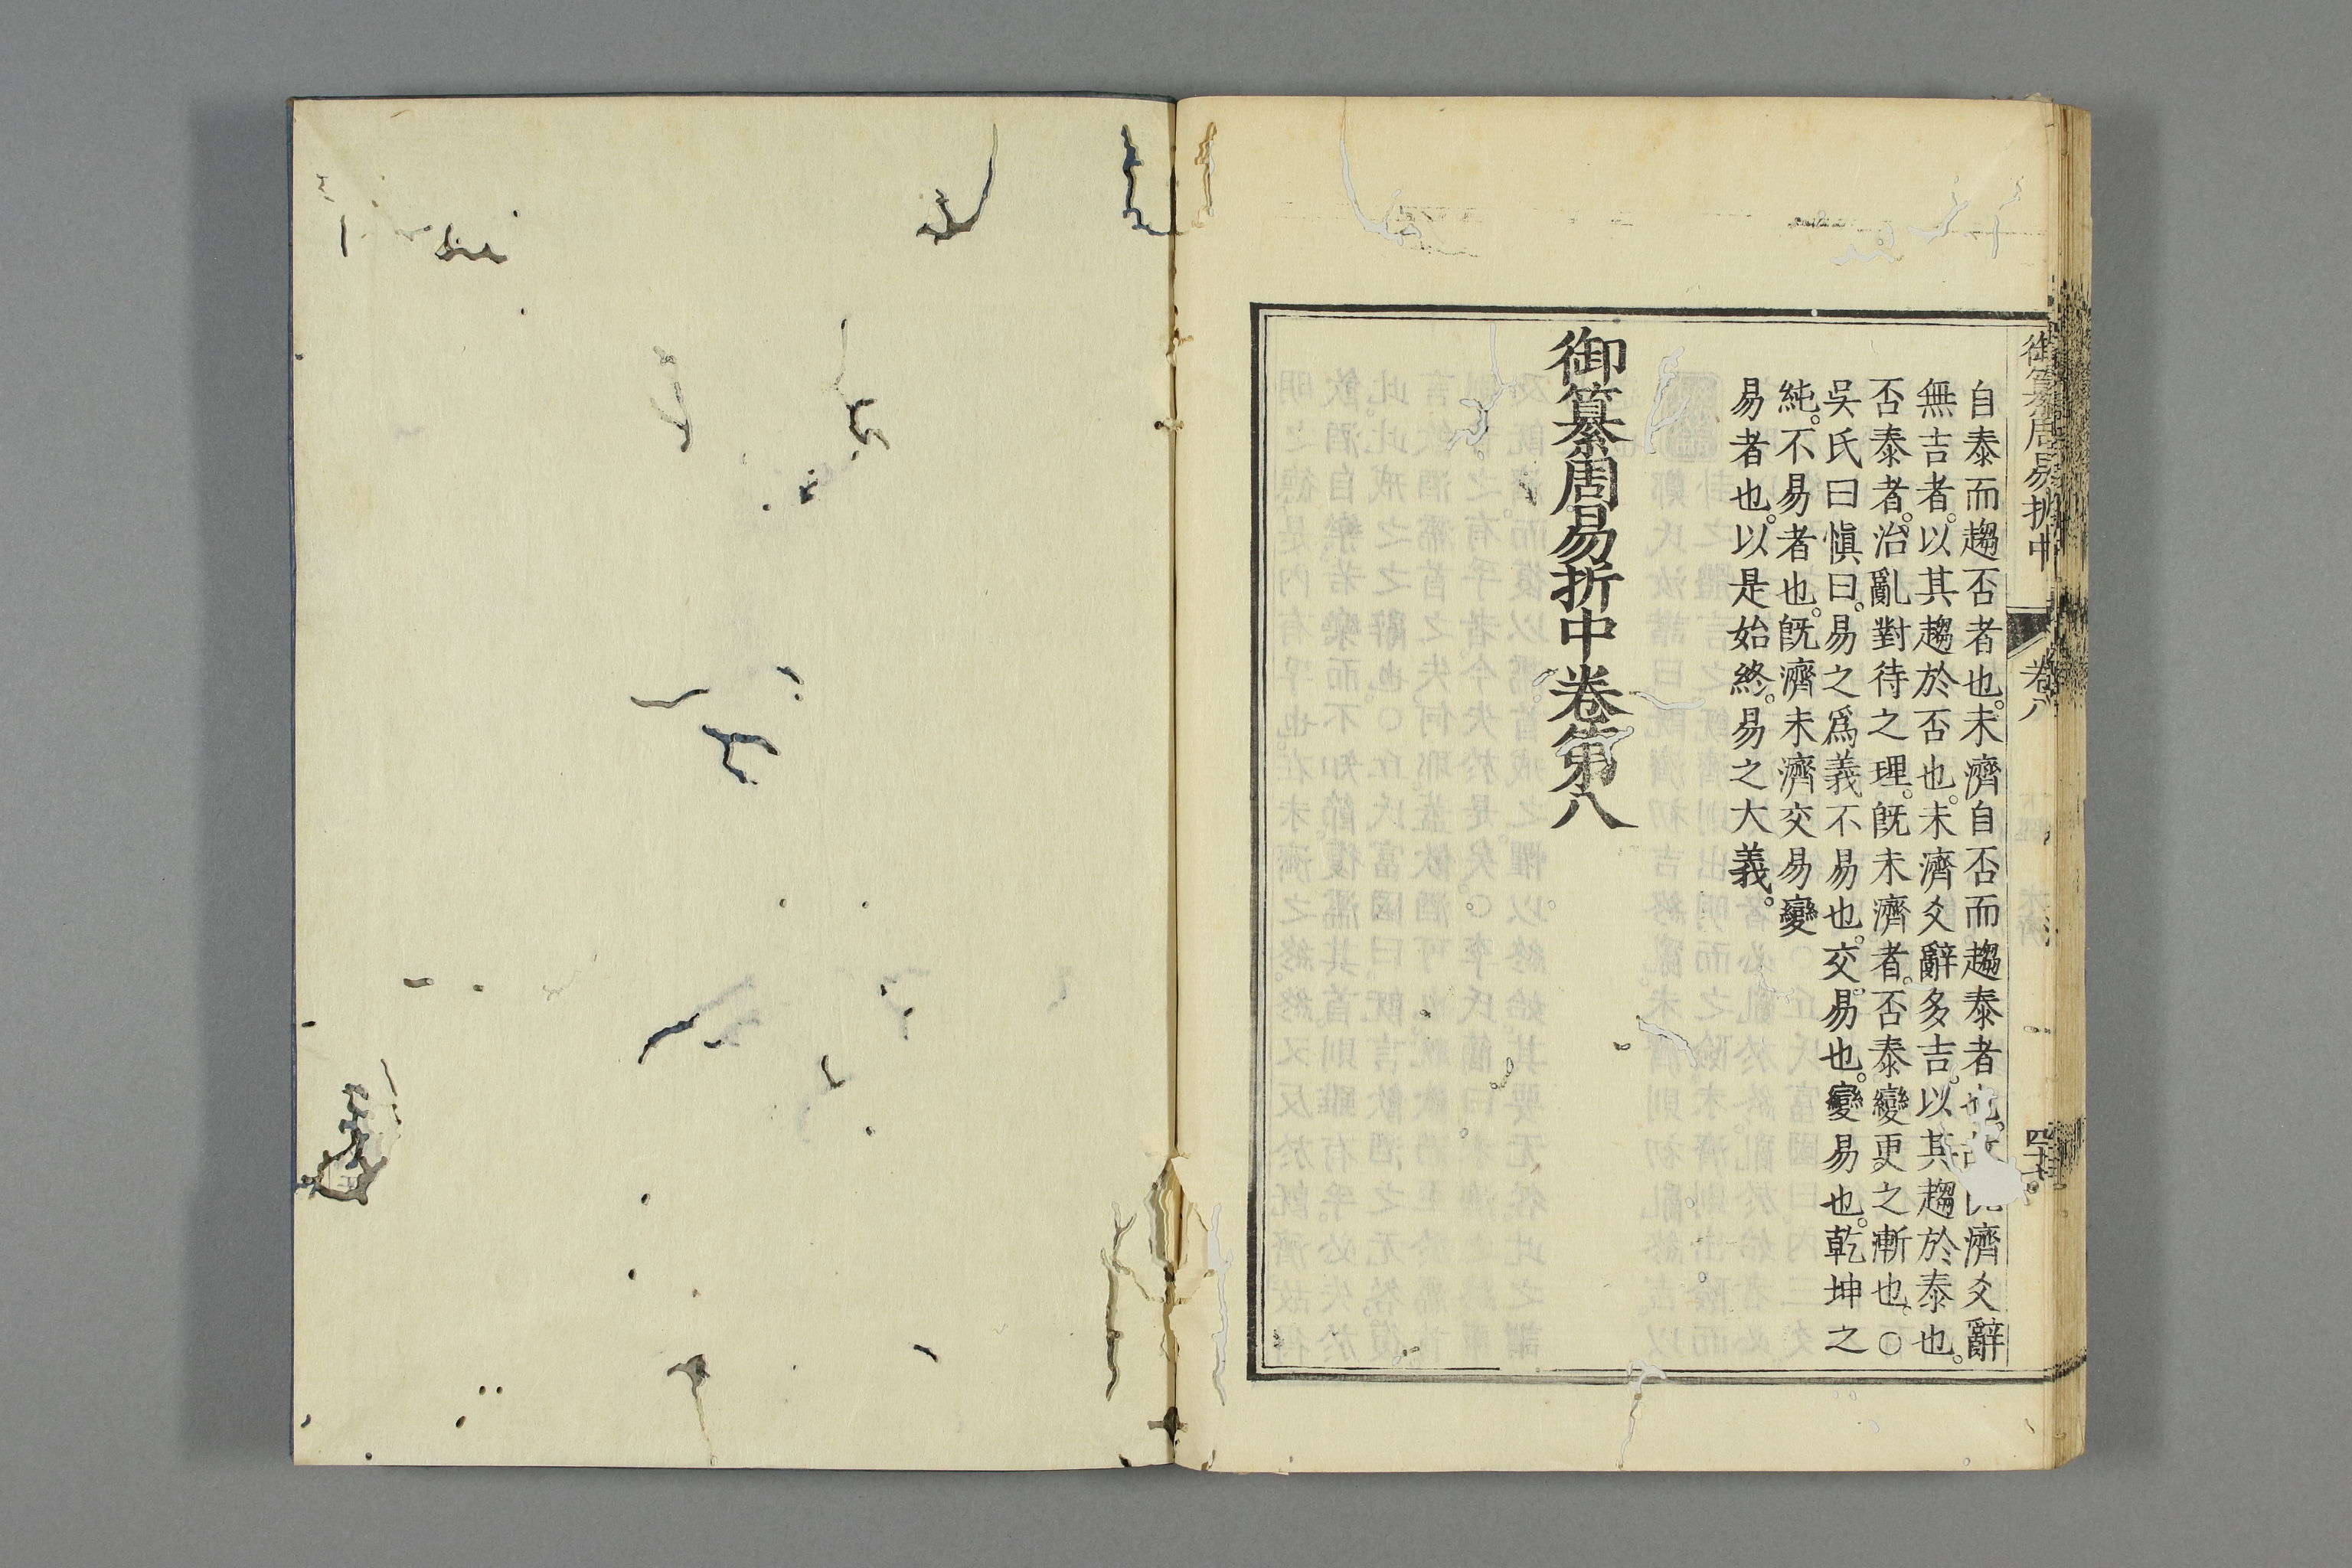 自泰而趨否者也。未濟自否而趨泰者也。故既濟爻辭
無吉者。以其趨於否也。未濟爻辭多吉。以其趨於泰也。
否泰者。治亂對待之理。旣未濟者。否泰變更之漸也。○
吳氏曰愼曰。易之爲義不易也。交易也。變易也。乾坤之
純。不易者也。旣濟未濟交易變
易者也。以是始終。易之大義。
御纂周易折中卷第八
御纂周易折中
卷八